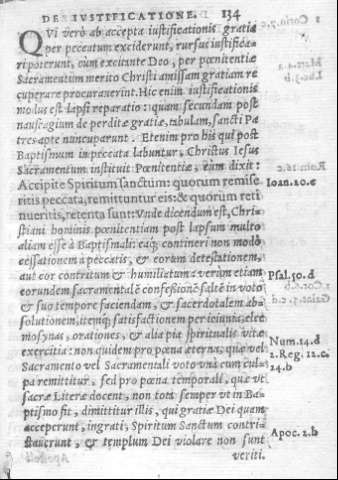 DE IVSTIFICATIONE. 134
QVi verò ab accepta iustificationis gratia
per peccatum exciderunt, rursus iustifica-
ri poterunt, cum excitante Deo, per pœnitentiæ
Sacramentum merito Christi amissam gratiam re
cuperare procurauerint. Hic enim iustificationis
modus est lapsi reparatio: quam secundam post
naufragium de perditæ gratiæ, tabulam, sancti Pa
tres apte nuncuparunt. Etenim pro his qui post
Baptismum in peccata labuntur, Christus Iesus
Sacramentum instituit Pœnitentiæ, cùm dixit:
Accipite Spiritum sanctum: quorum remise
ritis peccata, remittuntur eis: & quorum reti
nueritis, retenta sunt: Vnde dicendum est, Chri-
stiani hominis pœnitentiam post lapsum multo
aliam esse à Baptismali: eaq́; contineri non modò
cessationem à peccatis, & eorum detestationem,
aut cor contritum & humiliatum: verùm etiam
eorundem sacramentalē confessionē saltē in voto
& suo tempore faciendam, & sacerdotalem ab-
solutionem, itemq́; satisfactionem per ieiunia, elee
mosynas, orationes, & alia pia spiritualis vitæ
exercitia: non quidem pro pœna æterna, quæ vel
Sacramento vel Sacramentali voto vnà cum cul-
pa remittitur, sed pro pœna temporali, quæ vt
sacræ Literæ docent, non tota semper vt in Bap-
tismo fit, dimittitur illis, qui gratiæ Dei quam
acceperunt, ingrati, Spiritum Sanctum contri-
stauerunt, & templum Dei violare non sunt
veriti.
Ioan. 20. e
Psal. 50. d
Num. 14. d
2. Reg. 12. c.
24. b
Apoc. 2. b